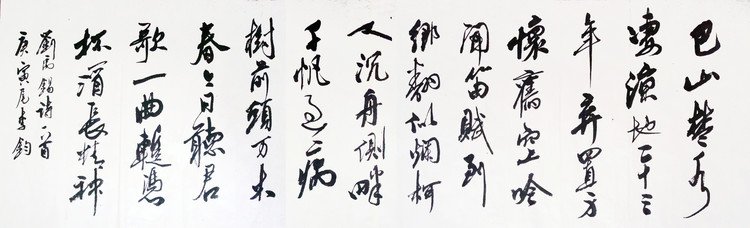 巴山楚水
淒涼地二十三
年弃置身
懷舊空吟
聞笛賦到
鄉翻似爛柯
人沉舟側畔
千帆過病
樹前頭万木
春今日聽君
歌一曲暫憑
杯酒長精神
劉禹錫詩一首
庚寅尾李鈞